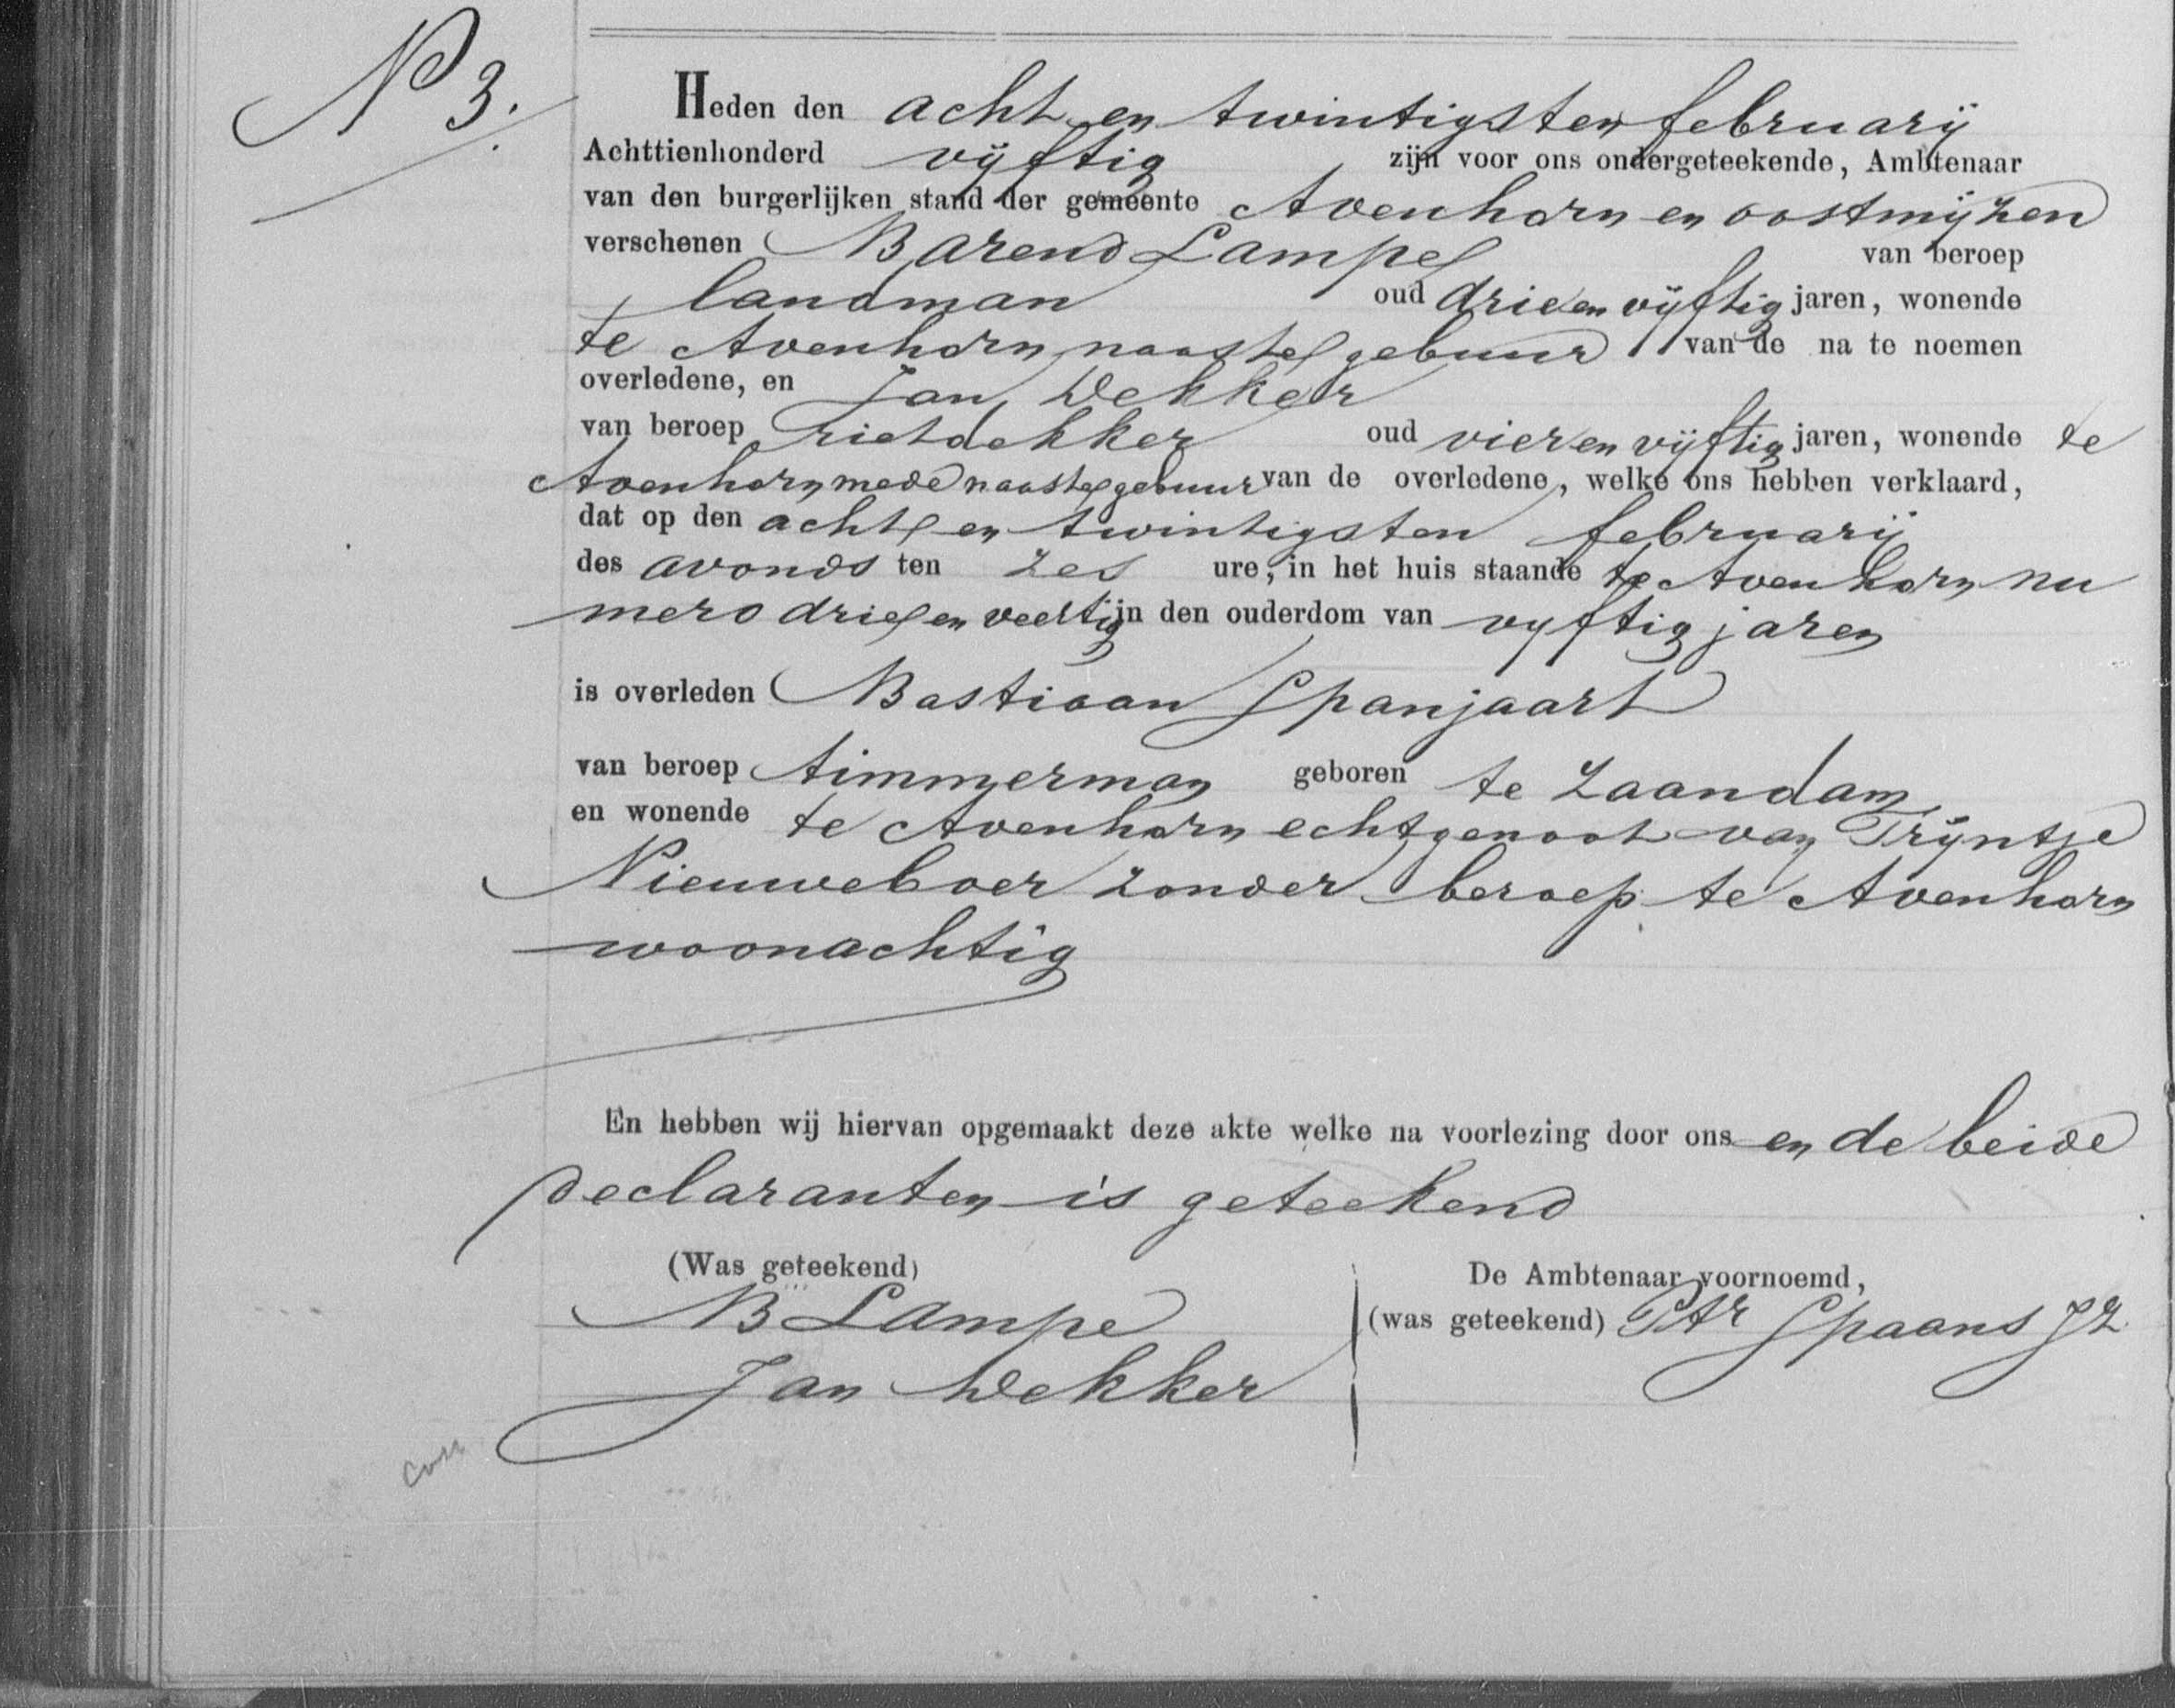 N° 3.
Heden den acht en twintigsten februarij
Achttienhonderd vijftig zijn voor ons ondergeteekende, Ambtenaar
van den burgerlijken stand der gemeente Avenhorn en oostmijzen
verschenen Barend Lampe van beroep
landman oud drie en vijftig jaren, wonende
te Avenhorn, naaste gebuur van de na te noemen
overledene, en Jan Dekker
van beroep rietdekker oud vier en vijftig jaren, wonende te
Avenhorn mede naaste gebuur van de overledene, welke ons hebben verklaard,
dat op den acht en twintigsten februarij
des avonds ten zes ure, in het huis staande te Avenhorn nu
mero drie en veertig in den ouderdom van vyftig jaren
is overleden Bastiaan Spanjaart
van beroep timmerman geboren te Zaandam
en wonende te Avenhorn echtgenoot van Trijntje
Nieuweboer zonder beroep te Avenhorn
woonachtig
En hebben wij hiervan opgemaakt deze akte welke na voorlezing door ons en de beide
declaranten is geteekend
(Was geteekend) De Ambtenaar voornoemd,
B Lampe (was geteekend) Ptr Spaans Jz
Jan Dekker